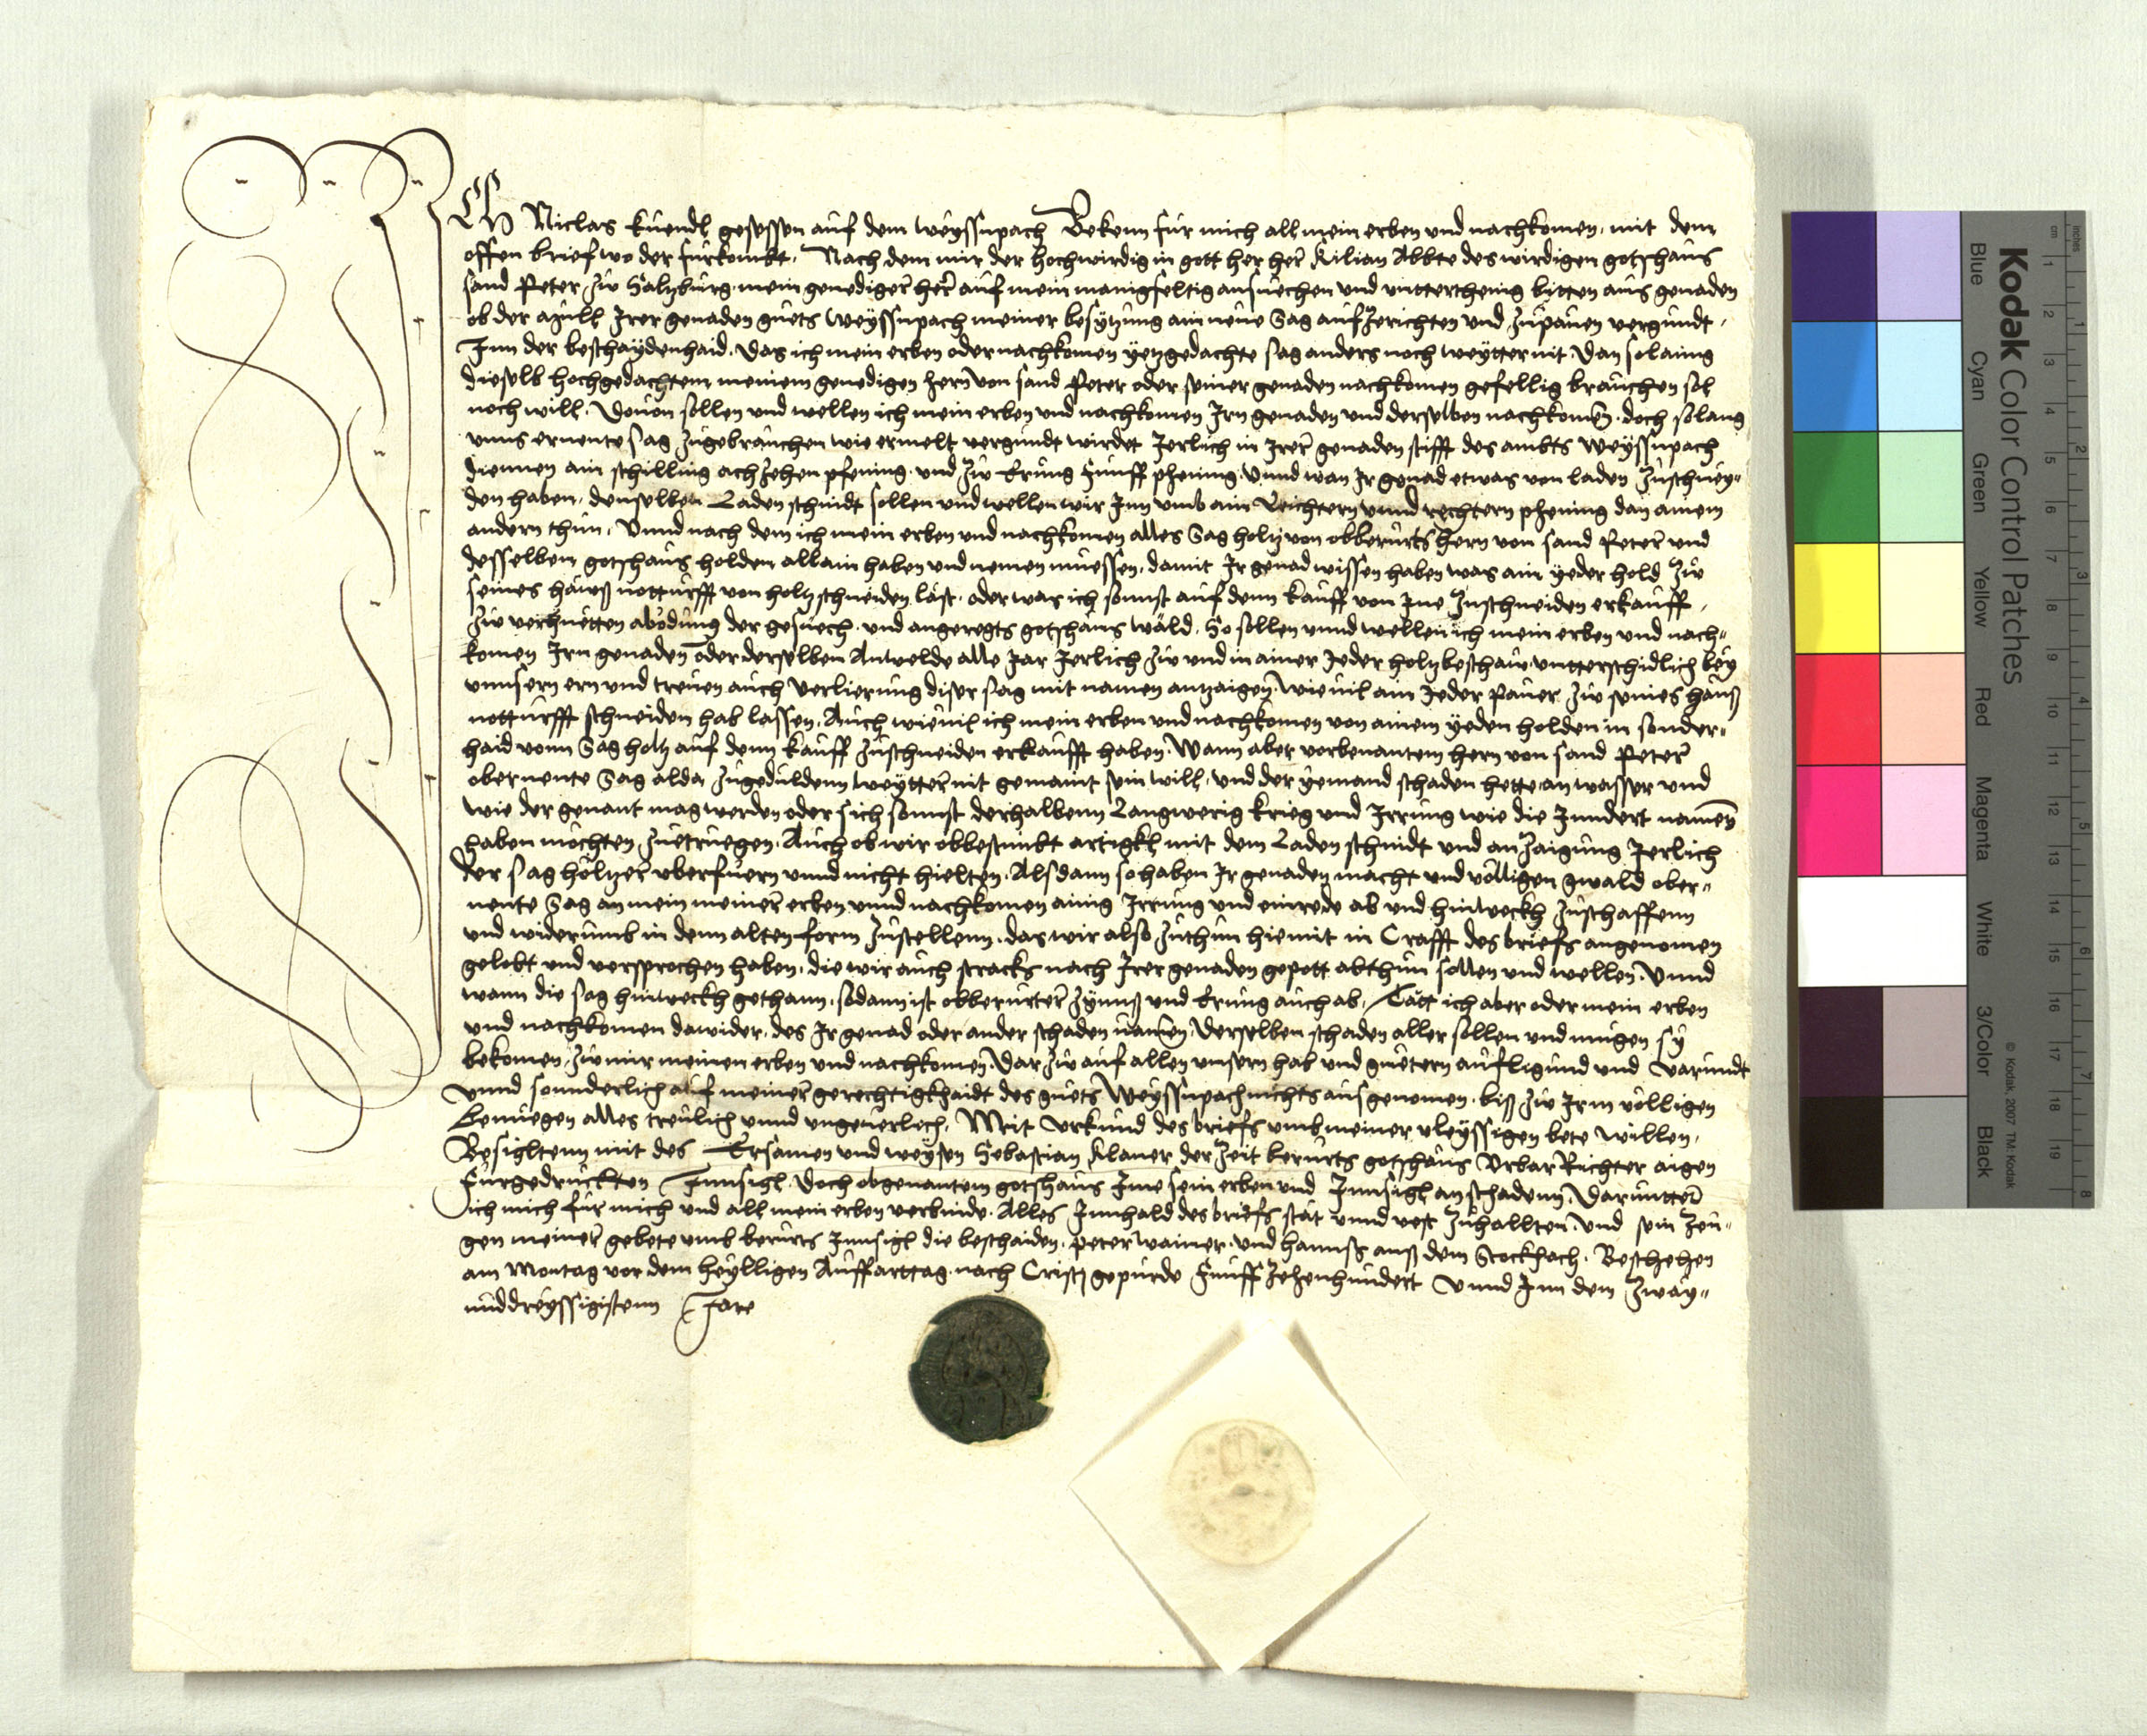 ICh Niclas Kuendl gesessen auf dem Weyssnpach Bekenn für mich all mein erben und nachkomen, mit dem
offen brief wo der fürkombt, Nach dem mir der hochwirdig in gott her her Kilian Abbte des wirdigen gotshaus
sand Peter zw Saltzburg mein genediger her auf mein manigfeltig ansuechen und unttertheinig bitten aus genaden
ob der Irer genaden guets Weyssnpach meiner besytzung ain neue Sag aufzerichten und zupauen vergundt,
Inn der beschaydenhaid, Das ich mein erben oder nachkomen yetzgedachte sag anders noch weytter nit, Dan solanng
dieselb hochgedachtem meinem genedigen hern von sand Peter oder seiner genaden nachkomen gefellig brauchen sol
noch will, Douon sollen und wellen ich mein erben und nachkomen Irn genaden und derselben nachkomen, doch solang
unns ernente sag zugebrauchen wie ermelt vergundt wirdet Jerlich in Irer genaden stifft des ambts Weyssnpach
diennen ain schilling achzehen pfening, und zw Erung Funff phening, Unnd wan Ir genad etwas von laden zuschney„
den haben, denselben Laden schnidt sollen und wellen wir Inn umb ain Leichtern unnd rechtern phening dan ainem
andern thun, Unnd nach dem ich mein erben und nachkomen alles Sag holtz von obberurts Hern von sand Peter und
desselben gotshaus holden allain haben und nemen muessen, damit Ir genad wissen haben was ain yeder hold zw
seines hauß notturfft von holtz schneiden läst, oder was ich sonnst auf denn kauff von Ine zuschneiden erkauff,
zw verhuetten abödung der gesuech, und angeregts gotshaus wäld, So sollen unnd wellen ich mein erben und nach„
komen Irn genaden oder derselben Anwelde alle Jar Jerlich zw und in ainer Jeder holtzbeschaw untterschidlich bey
unnsern ern und treuen auch Verlierung diser sag mit namen antzaigen, wieuil ain Jeder Pauer zw seines hauß
notturfft schneiden hab lassen, Auch wieuil ich mein erben und nachkomen von ainem yeden holden in sonder„
haid vonn Sag holtz auf denn kauff zuschneiden erkaufft haben, Wann aber vorbenantem hern von sand Peter
obernente Sag alda zugeduldenn weytter nit gemaint sein will, und der yemand schaden hette an wasser und
wie der genant mag werden oder sich sonnst derhalbenn Langwerig krieg und Irrung wie die Inndert namen
haben möchten zuetruegen, Auch ob wir obbestimbt artigkl mit dem Laden schnidt und anzaigung Jerlich
der sag höltzer uberfuern unnd nicht hielten, Alsdann so haben Ir genaden macht und völligen gwald ober„
nente Sag an mein meiner erben unnd nachkomen ainig Irrung und einrede ab und hinweckh zuschaffenn
und widerumb in denn alten form zustellenn, das wir also zuthun hiemit in Crafft des briefs angenomen
gelobt und versprochen haben, die wir auch stracks nach Irer genaden gepott abthun sollen und wellen, Unnd
wann die sag hinweckh gethann, sodann ist obberurter zynnß und Erung auch ab, Tätt ich aber oder mein erben
und nachkomen dawider, des Ir genad oder ander schaden namen, Derselben schaden aller sollen und mugen sy
bekomen, zw mir meinen erben und nachkomen, Dar zw auf allen unsern hab und guetern aufligund und Varundt
unnd sonnderlich auf meiner gerechtigkhaidt des guets Weyssnpach nichts ausgenomen, biß zw Irm völligen
Benuegen alles treulich unnd ungeuerlich, Mit Urkund des briefs umb meiner vleyssigen bete willen,
Besigltenn mit des Ersamen und weysen Sebastian Klaner der Zeit berurts gotshaus Urbar Richter aigen
Fürgedruckten Innsigl, Doch obgenantem gotshaus Ime sein erben und Innsigl an schadenn, Daruntter
ich mich für mich und all mein erben verbinde, Alles Innhald des briefs stät unnd vest zuhallten, Und sein zeu„
gen meiner gebete umb berurts Innsigl die beschaiden, Peter Wainer, und Hanns auß dem Stockhach, Beschehen
am Montag vor dem heylligen Auffarttag, nach Cristi gepurde Funffzehenhundert Unnd Inn dem Zway„
unddreyssigistenn Jare
Kodak Color Control Patches
Blue Cyan Green Yellow Red Magenta White 3/Color Black
© Kodak, 2007 TM: Kodak
cm 1 2 3 4 5 6 7 8 9 10 11 12 13 14 15 16 17 18 19
inches 1 2 3 4 5 6 7 8